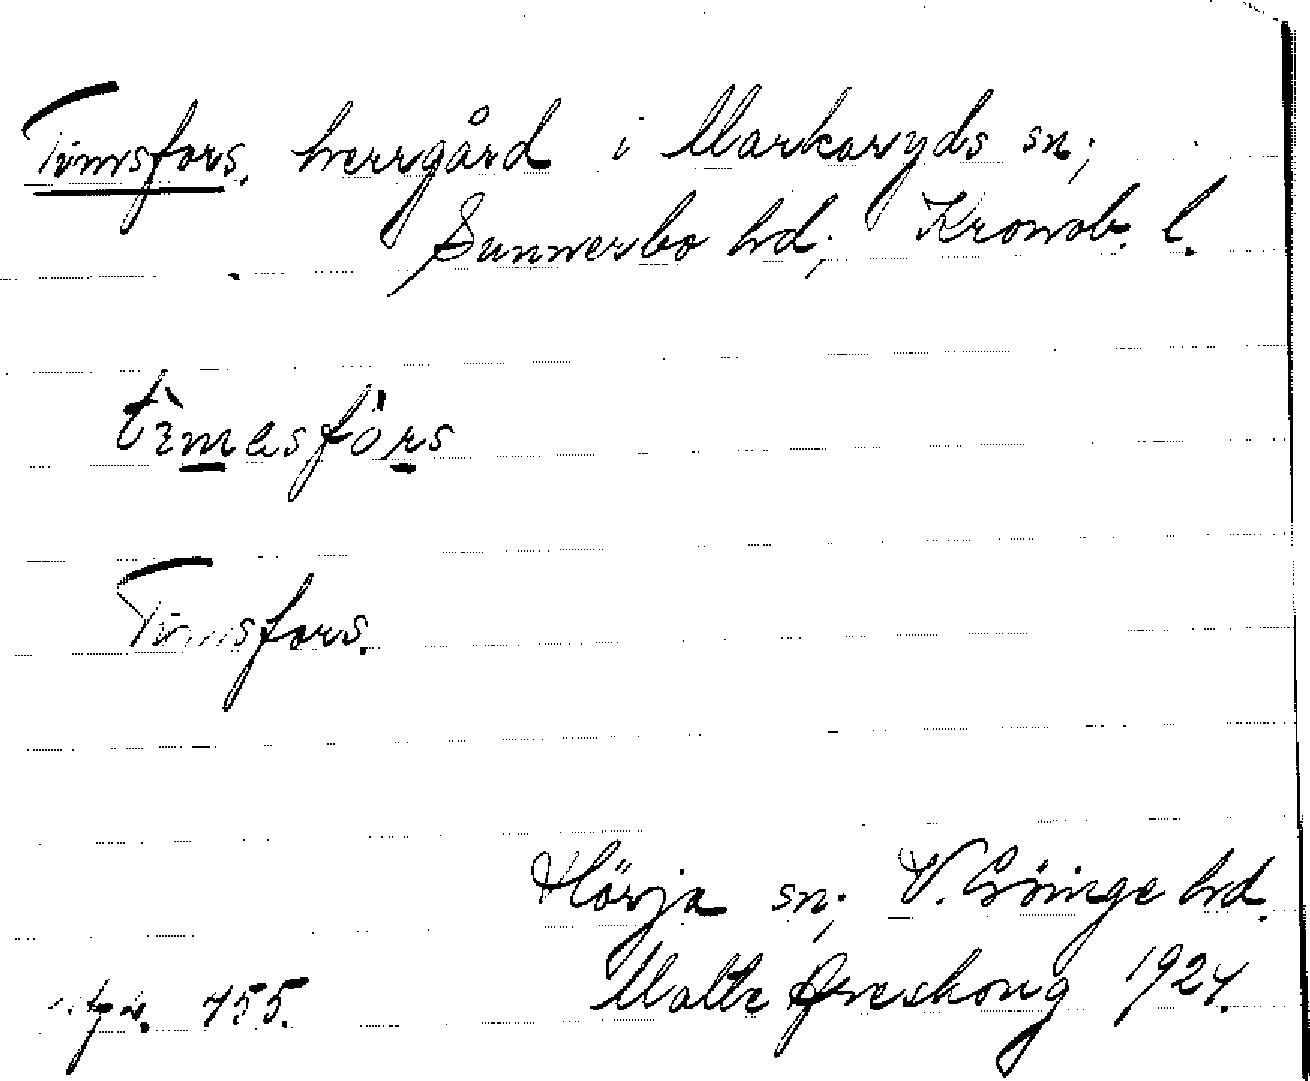 Timsfors, herrgård i Markaryds sn;
Sunnerbo hd; Kronob. l.
Timsfors.
Hörja sn; V. Göinge hd.
Malte 1924.
455.